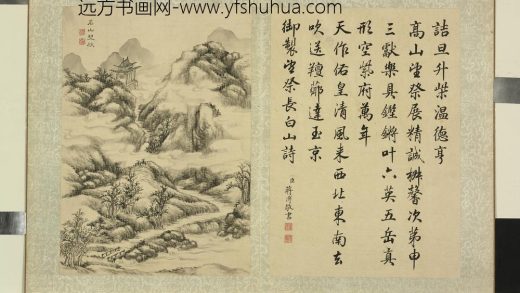 远方书画网-www.yfshuhua.com
名山望秩
詰旦升柴温德亨
高山望祭展精誠椒馨次第申
三獻樂具鏗鏘叶六英五岳真
形空紫府萬年
天作佑皇清風来西北東南去
吹送羶薌達玉京
御製望祭長白山詩
蔣溥敬書